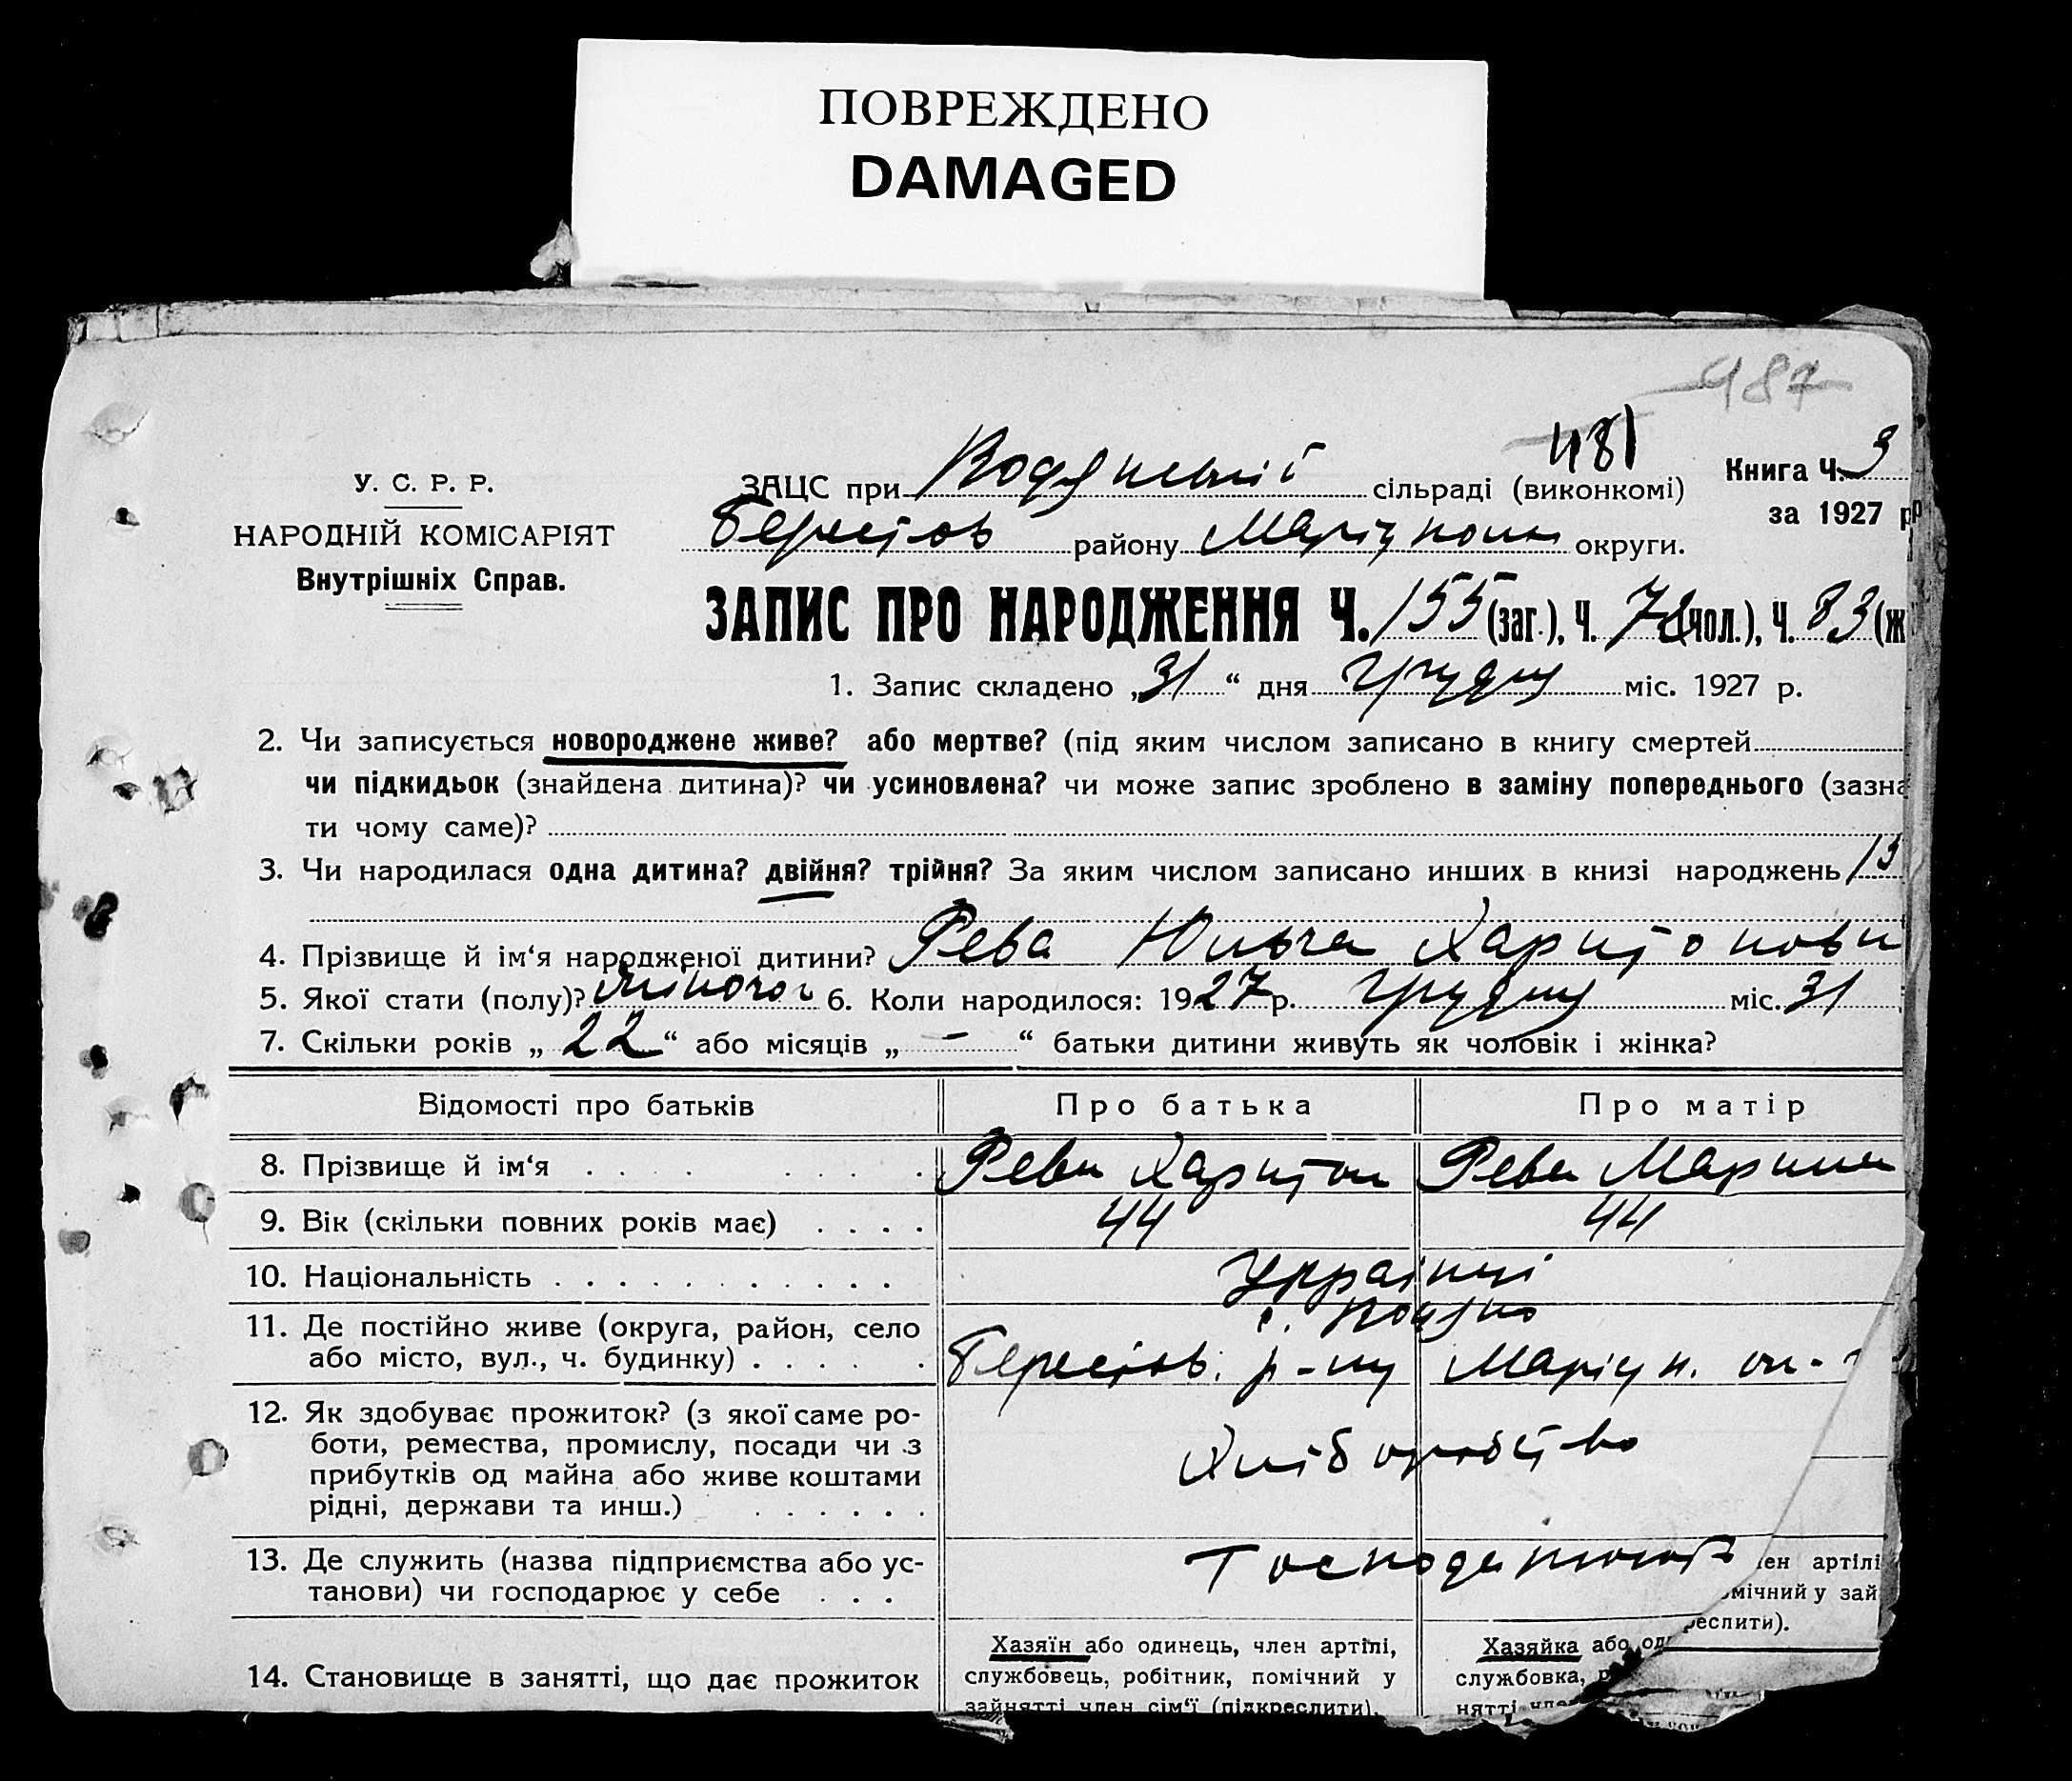 ПОВРЕЖДЕНО
DAMAGED
487
481
У. С. Р. Р.
НАРОДНІЙ КОМІСАРІЯТ
Внутрішніх Справ.
ЗАЦС при сільраді (виконкомі)
Книга Ч. 3
за 1927 р
Берестов району Маріупол округи.
ЗАПИС ПРО НАРОДЖЕННЯ Ч. 155 (заг.), Ч. 72 (чол.), Ч. 83 (ж
1. Запис складено „31“ дня Грудня міс. 1927 р.
2. Чи записується новороджене живе? або мертве? (під яким числом записано в книгу смертей
чи підкидьок (знайдена дитина)? чи усиновлена? чи може запис зроблено в заміну попереднього (зазна
ти чому саме)?
3. Чи народилася одна дитина? двійня? трійня? За яким числом записано инших в книзі народжень 15
4. Прізвище й ім‘я народженої дитини? Рева Харитонови
5. Якої стати (полу)? 6. Коли народилося: 1927 р. Грудня міс. 31
7. Скільки років „22“ або місяців „-“ батьки дитини живуть як чоловік і жінка?
Відомості про батьків Про батька Про матір
8. Прізвище й ім‘я Рева Харитон Рева Марина
9. Вік (скільки повних років має) 44 44
10. Національність Українці
11. Де постійно живе (округа, район, село
або місто, вул., ч. будинку) Берестов. р-ну Маріуп. ок-
12. Як здобуває прожиток? (з якої саме ро-
боти, ремества, промислу, посади чи з
прибутків од майна або живе коштами
рідні, держави та инш.)
Хліборобство
13. Де служить (назва підприємства або ус-
танови) чи господарює у себе
лен артілі
мічний у зай
реслити).
14. Становище в занятті, що дає прожиток
Хазяїн або одинець, член артілі,
службовець, робітник, помічний у
зайнятті член сім‘ї (підкреслити).
Хазяйка або од
службовка, р
нятті чле